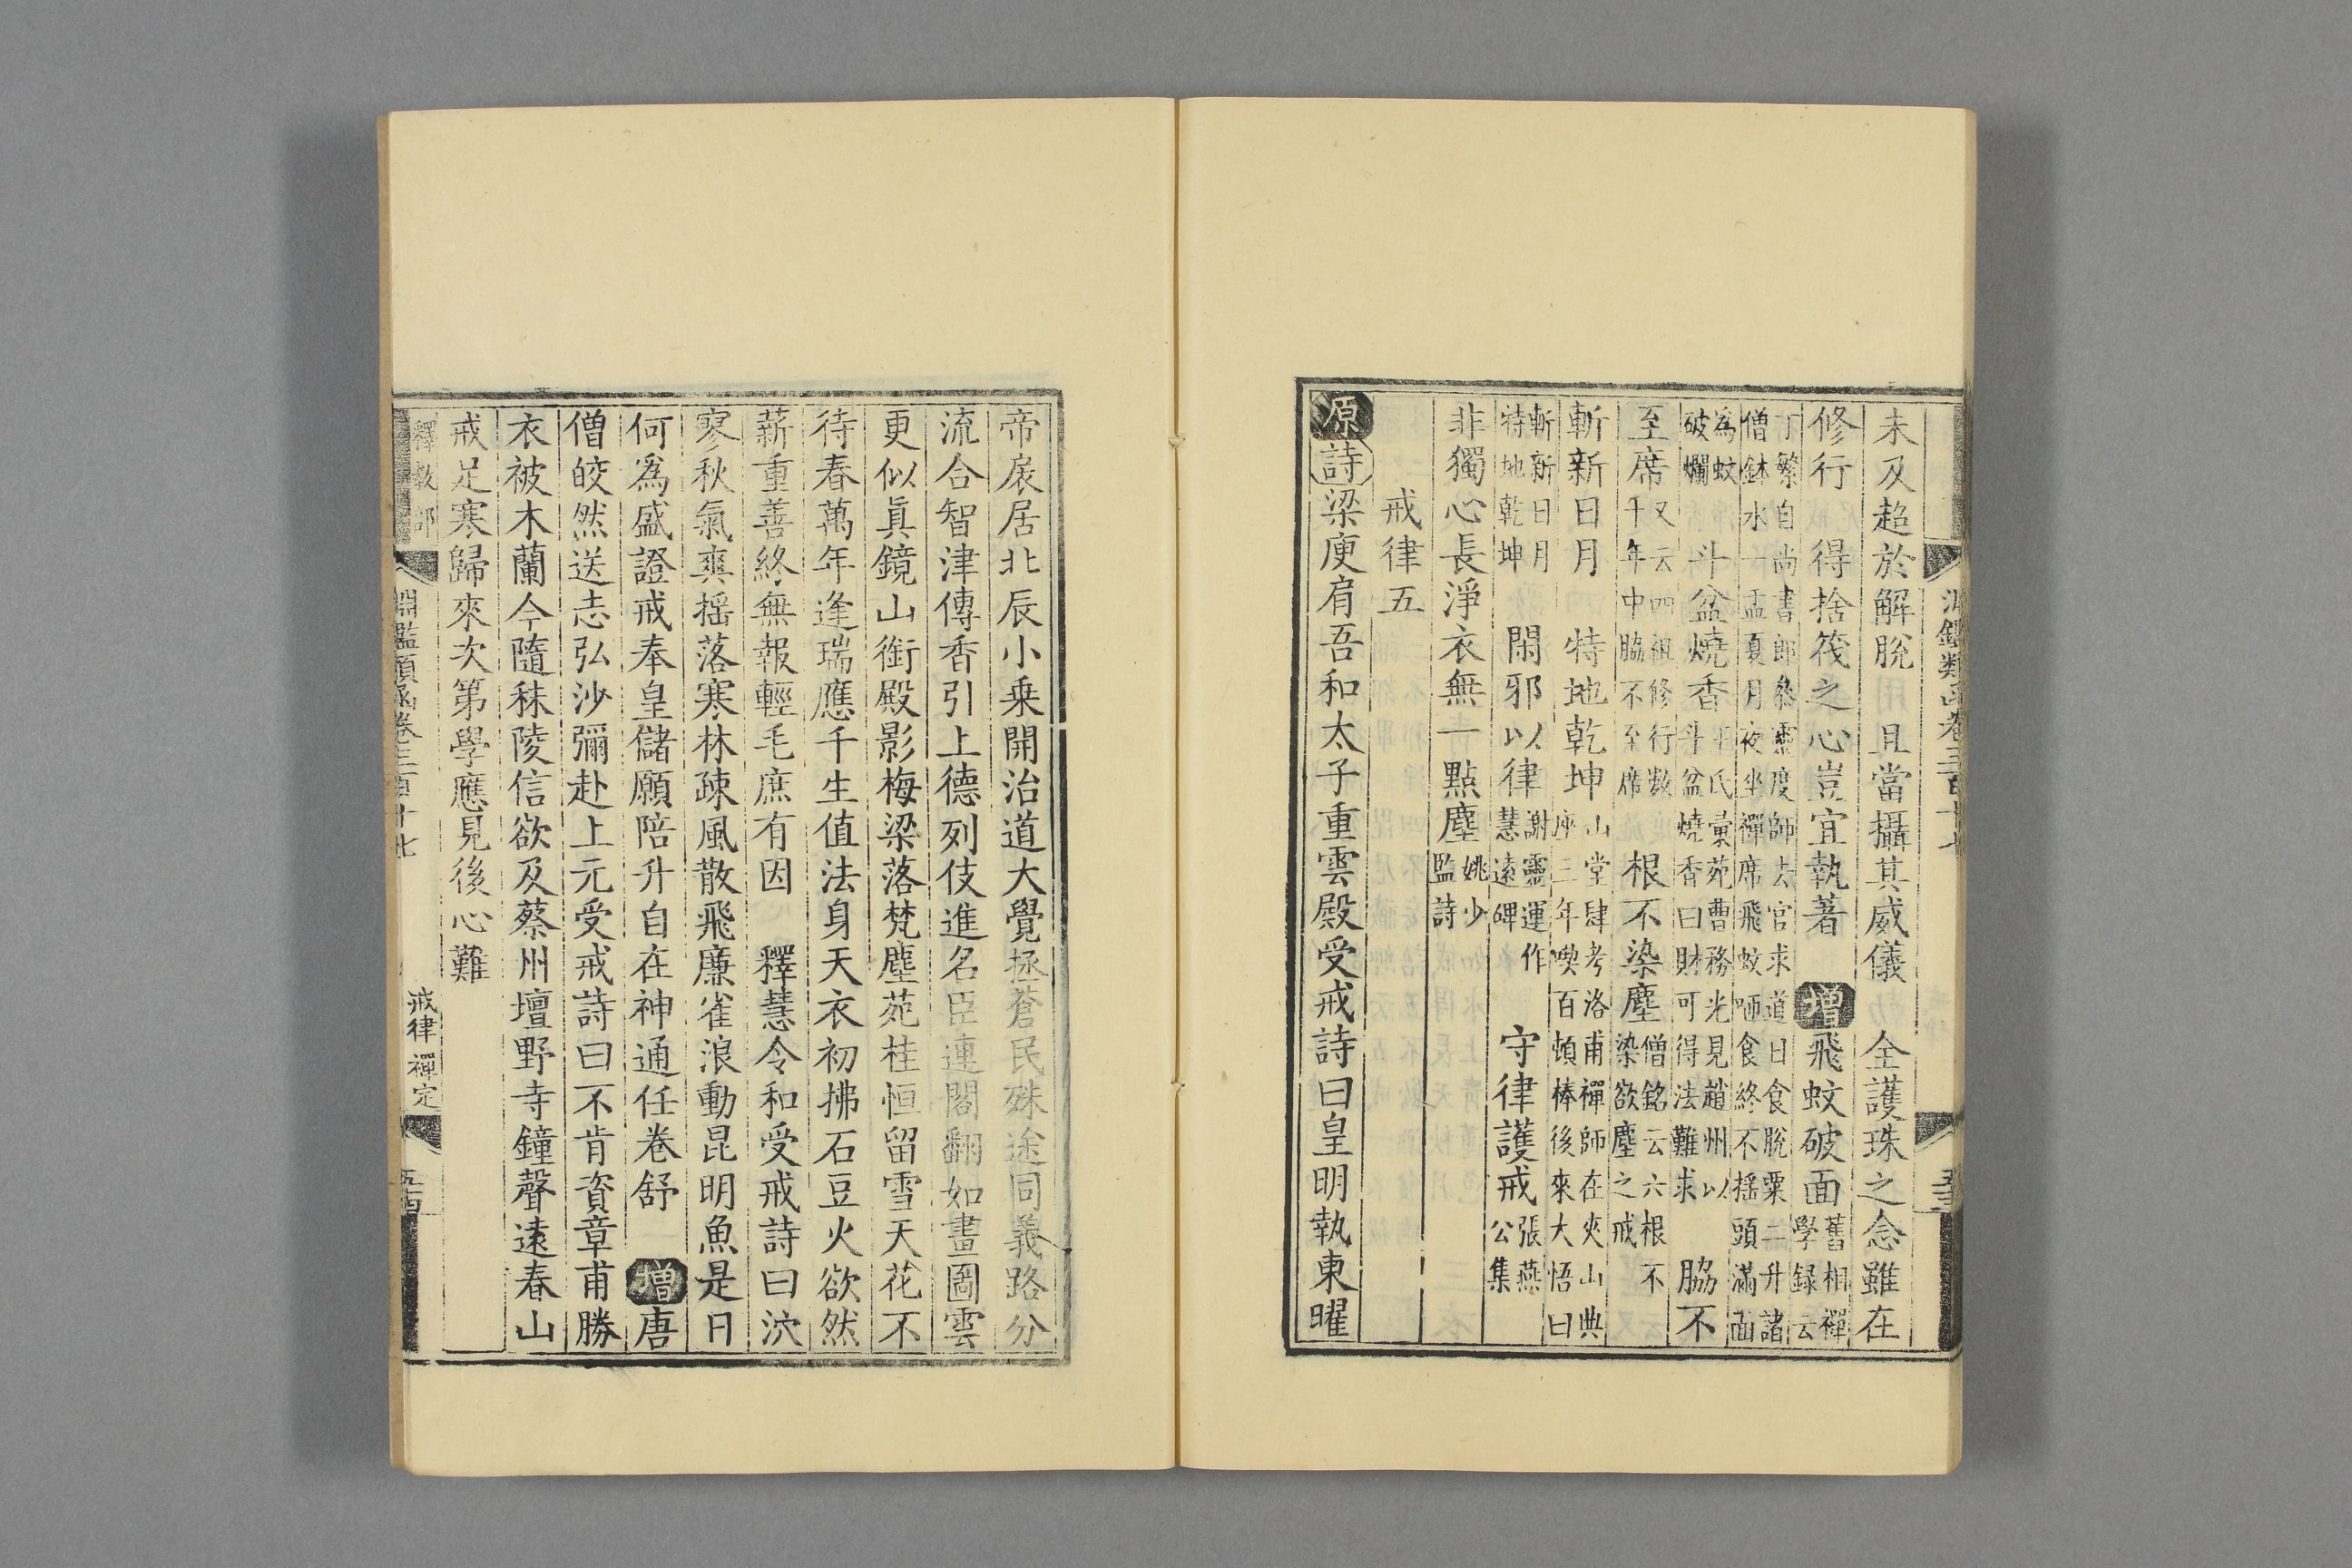 未及超於解脫 且當攝其威儀 全護珠之念雖在
修行 得捨筏之心豈宜執著 增飛蚊破面 舊相禪
學録云
丁繁自尚書郎叅靈度師去官求道日食脫粟二升諸
僧鉢水一盂夏月夜坐禪席飛蚊咂食終不揺頭滿面
為蚊
破爛
斗盆燒香 王氏彙苑曹務光見趙州以
斗盆燒香曰財可得法難求
脇不
至席 又云四祖修行數
千年中脇不至席
根不染塵 僧銘云六根不
染欲塵之戒
斬新日月 特地乾坤 山堂肆考洛甫禪師在夾山典
座三年喫百頓棒後來大悟曰
斬新日月
特地乾坤
閑邪以律 謝靈運作
慧遠碑
守律護戒 張燕
公集
非獨心長淨衣無一點塵 姚少
監詩
戒律五
原詩梁庾肩吾和太子重雲殿受戒詩曰皇明執東曜
帝扆居北辰小乗開治道大覺拯蒼民殊途同義路分
流合智津傳香引上德列伎進名臣連閣翻如畫圖雲
更似眞鏡山銜殿影梅梁落梵塵苑桂恒留雪天花不
待春萬年逢瑞應千生值法身天衣初拂石豆火欲然
薪重善終無報輕毛庶有因 釋慧令和受戒詩曰泬
寥秋氣爽揺落寒林疎風散飛廉雀浪動昆明魚是日
何爲盛證戒奉皇儲願陪升自在神通任卷舒 增唐
僧皎然送志弘沙彌赴上元受戒詩曰不肯資章甫勝
衣被木蘭今隨秣陵信欲及蔡州壇野寺鐘聲遠春山
戒足寒歸來次第學應見後心難
釋教部 淵鑑類函卷三百十七 戒律 禪定 五十四